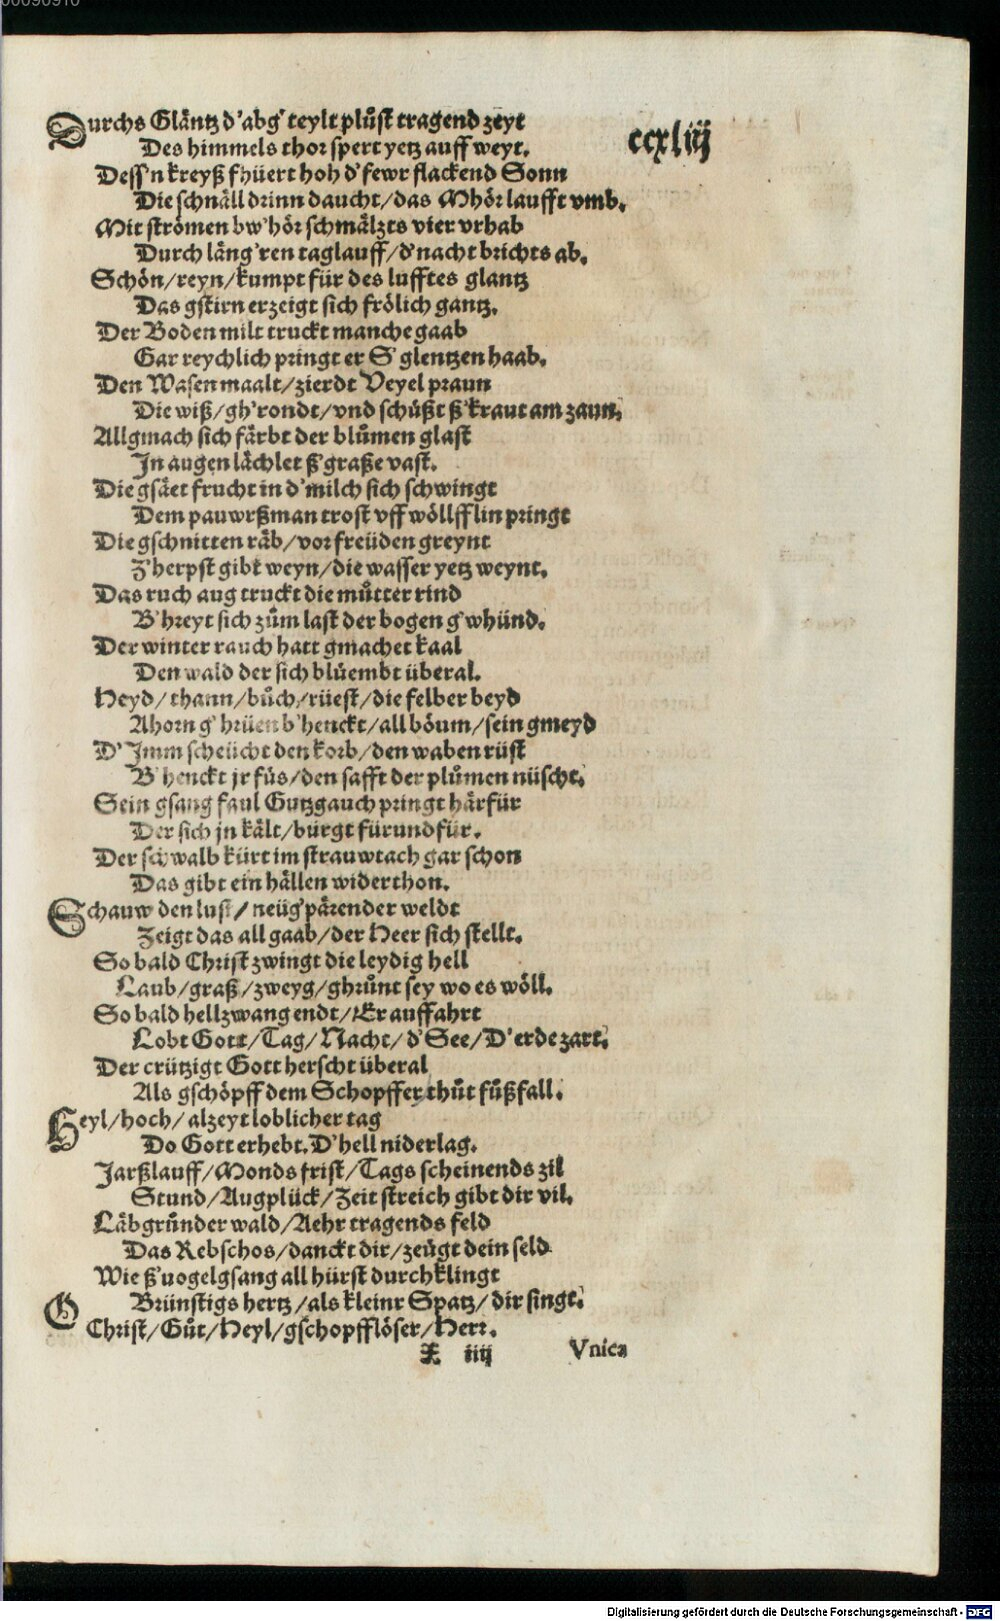 ccxliij
Durchs Gläntz d'abg'teylt plůst tragend zeyt
Des himmels thor spert yetz auff weyt.
Dess'n kreyß fhüert hoh d'fewr flackend Sonn
Die schnäll drinn daucht/das Mhör laufft vmb.
Mit strömen bw'hör schmältzts vier vrhab
Durch läng'ren taglauff/d'nacht brichts ab.
Schön/reyn/kumpt für des lufftes glantz
Das gstirn erzeigt sich frölich gantz.
Der Boden milt truckt manche gaab
Gar reychlich pringt er S'glentzen haab.
Den Wasen maalt/zierdt Veyel praun
Die wiß/gh'rondt/vnd schüßt ß'kraut am zaun.
Allgmach sich färbt der blůmen glast
In augen lächlet ß'graße vast.
Die gsäet frucht in d'milch sich schwingt
Dem pauwrßman trost vff wöllfflin pringt
Die gschnitten räb/vor freüden greynt
Z'herpst gibt weyn/die wasser yetz weynt.
Das ruch aug truckt die můtter rind
B'hreyt sich zům last der bogen g'whünd.
Der winter rauch hatt gmachet kaal
Den wald der sich blüembt überal.
Heyd/thann/bůch/rüest/die felber beyd
Ahorn g'hrüen b'henckt/all böum/sein gmeyd
D'Imm scheücht den korb/den waben rüst
B'henckt jr füs/den safft der plůmen nüscht.
Sein gsang faul Gutzgauch pringt härfür
Der sich jn kält/bürgt für und für.
Der schwalb kürt im strauwtach gar schon
Das gibt ein hällen widerthon.
Schauw den lust/neüg'pärender weldt
Zeigt das all gaab/der Heer sich stellt.
So bald Christ zwingt die leydig hell
Laub/graß/zweyg/ghrůnt sey wo es wöll.
So bald hellzwang endt/Er auffahrt
Lobt Gott/Tag/Nacht/d'See/D'erde zart.
Der crützigt Gott herscht überal
Als gschöpff dem Schopffer thůt fůßfall.
Heyl/hoch/alzeyt loblicher tag
Do Gott erhebt. D'hell niderlag.
Jarßlauff/Monds frist/Tags scheinends zil
Stund/Augplück/Zeit streich gibt dir vil.
Läbgrůnder wald/Aehr tragends feld
Das Rebschos/danckt dir/zeügt dein seld
Wie ß'uogelgsang all hürst durchklingt
Brünstigs hertz/als kleinr Spatz/dir singt.
O Christ/Gůt/Heyl/gschopfflöser/Herr.
X iiij Vnica
Digitalisierung gefördert durch die Deutsche Forschungsgemeinschaft - DFG